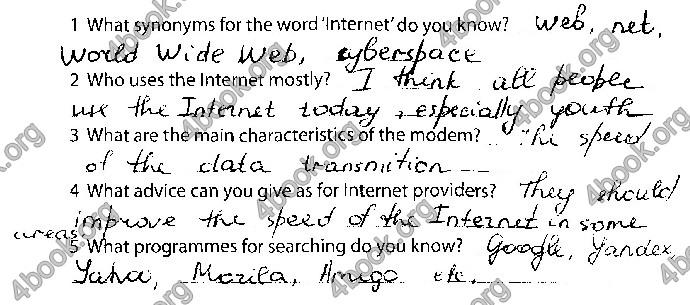 1 What synonyms for the word 'Internet' do you know? Web, net,
World Wide Web, cyberspace
2 Who uses the Internet mostly? I think all people
use the Internet today, especially youth
3 What are the main characteristics of the modem? The speed
of the data transmition
4 What advice can you give as for Internet providers? They should
improve the speed of the Internet in some
areas
5 What programmes for searching do you know? Google, Yandex,
Yahoo, Mozila, Amigo etc.